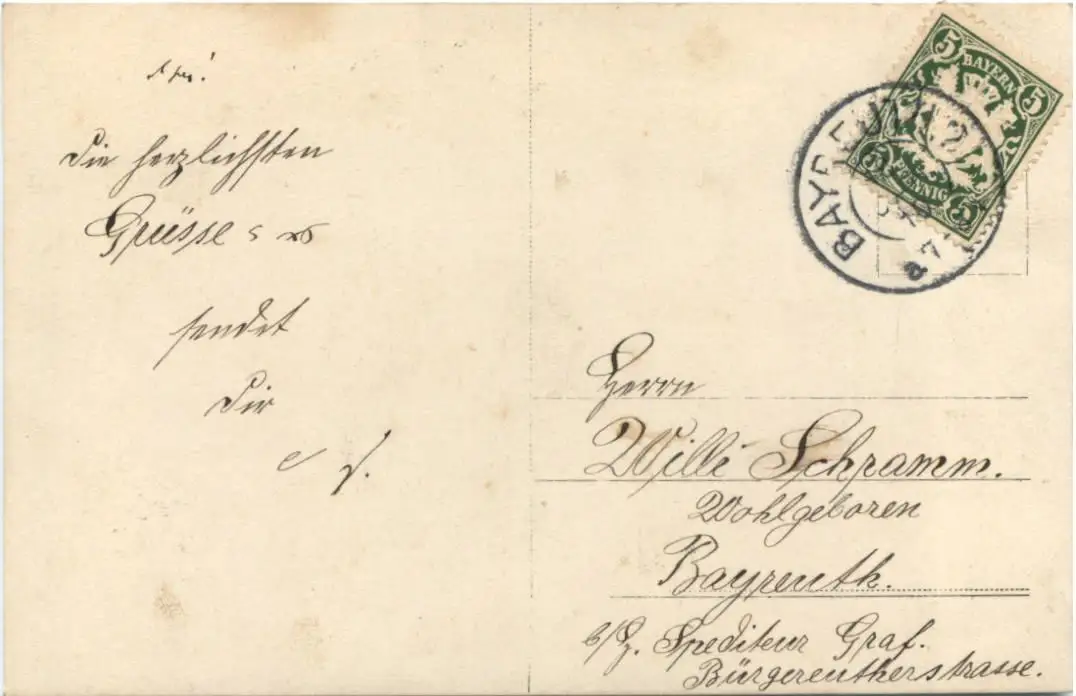 Die herzlichsten
Grüsse
sendet
Dir
5 BAYERN 5
5 PFENNIG 5
BAYREUTH 2
Herrn
Willi Schramm.
Wohlgeboren
Bayreuth.
Spediteur Graf.
Bürgereutherstrasse.